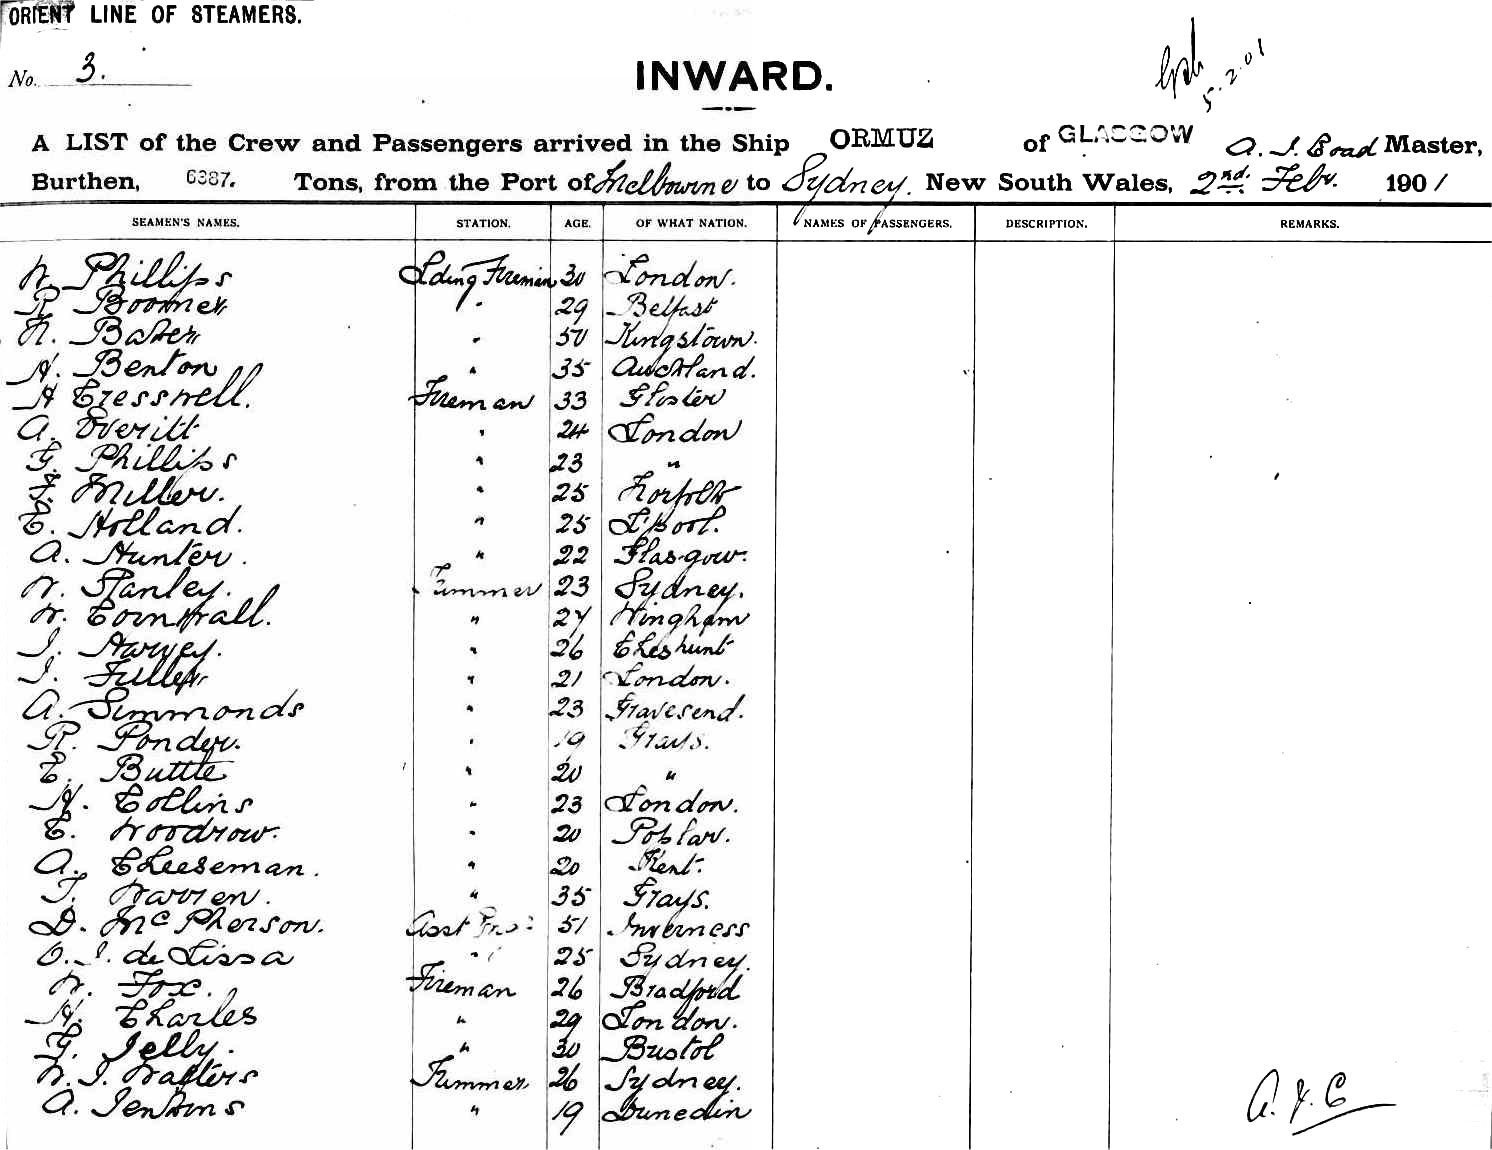 ORIENT LINE OF STEAMERS.
No. 3.
INWARD.
5.2.01
A LIST of the Crew and Passengers arrived in the Ship ORMUZ of GLASGOW A. J. Coad Master,
Burthen, 6387. Tons, from the Port of Melbourne to Sydney. New South Wales, 2nd. Feby. 1901
SEAMEN'S NAMES. STATION. AGE. OF WHAT NATION. NAMES OF PASSENGERS. DESCRIPTION. REMARKS.
W. Phillips Lding Fireman 30 London.
R. Boomer " 29 Belfast
Baker " Kingstown.
H. Benton " 35 Auckland.
H Cressnell. Fireman 33 Gloster
A. Everitt " 24 London
G. Phillips " 23 "
Miller. " 25 Norfolk
C. Holland. " 25 L'Pool.
A. Hunter. " 22 Glasgow.
W. Stanley. Trimmer 23 Sydney.
W. Cornwall. " 24 Wingham
J. Harvey. " 26 Cheshunt
J. Fuller " 21 London.
A. Simmonds " 23 Gravesend.
R. Ponder. " 19 Grays.
C. Buttle " 20 "
H. Collins " 23 London.
C. Woodrow. " 20 Poplar.
A. Cheeseman. " 20 Kent.
T. Warren. " 35 Grays.
D. McPherson. Asst 51 Inverness
O. J. de Lissa " 25 Sydney.
W. Fox. Fireman 26 Bradford
H. Charles " 29 London.
G. Jelly. " 30 Bristol
W. J. Walters Trimmer 26 Sydney.
A. Jenkins " 19 Dunedin